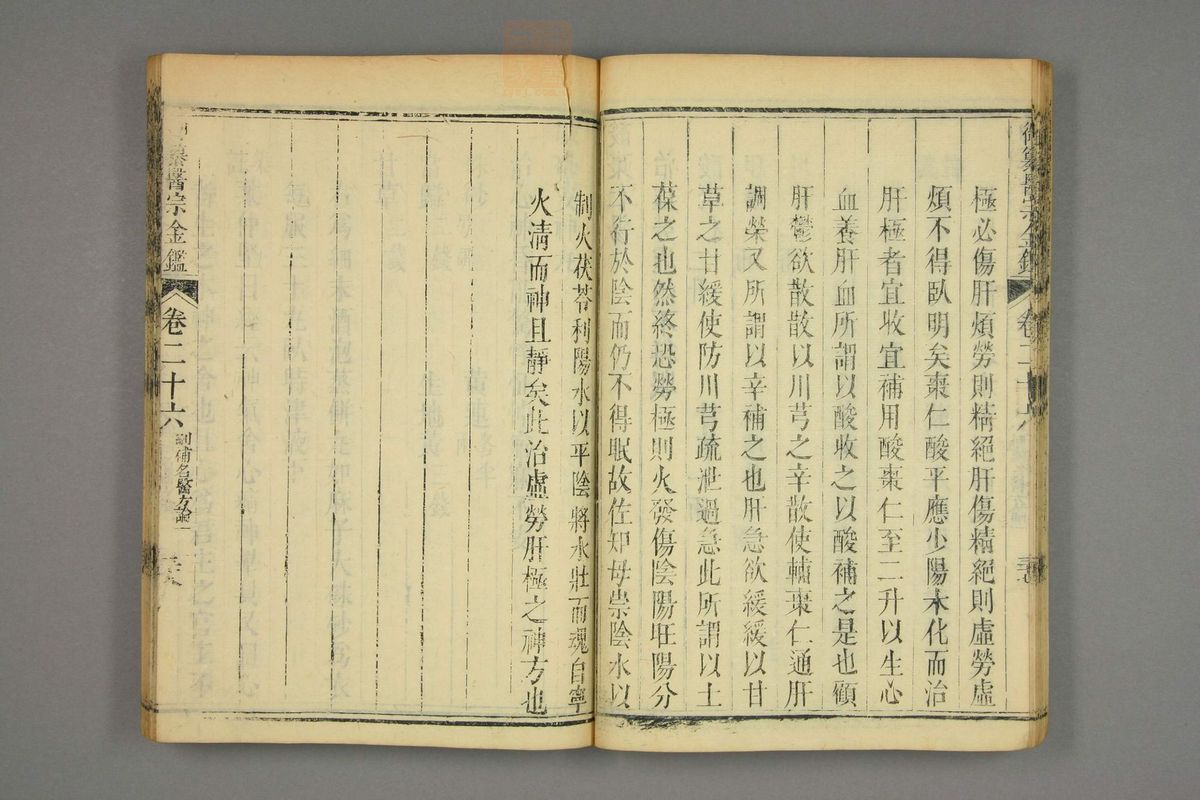 極必傷肝煩勞則精絕肝傷精絕則虛勞虛
煩不得臥明矣棗仁酸平應少陽木化而治
肝極者宜收宜補用酸棗仁至二升以生心
血養肝血所謂以酸收之以酸補之是也顧
肝鬱欲散散以川芎之辛散使輔棗仁通肝
調榮又所謂以辛補之也肝急欲緩緩以甘
草之甘緩使防川芎疏泄過急此所謂以土
葆之也然終恐勞極則火發傷陰陽旺陽分
不行於陰而仍不得眠故佐知母崇陰水以
制火茯苓利陽水以平陰將水壯而魂自寧
火清而神且靜矣此治虛勞肝極之神方也
御纂醫宗金鑑
卷二十六
纂醫宗金鑑
卷二十六
刪補名醫方論一